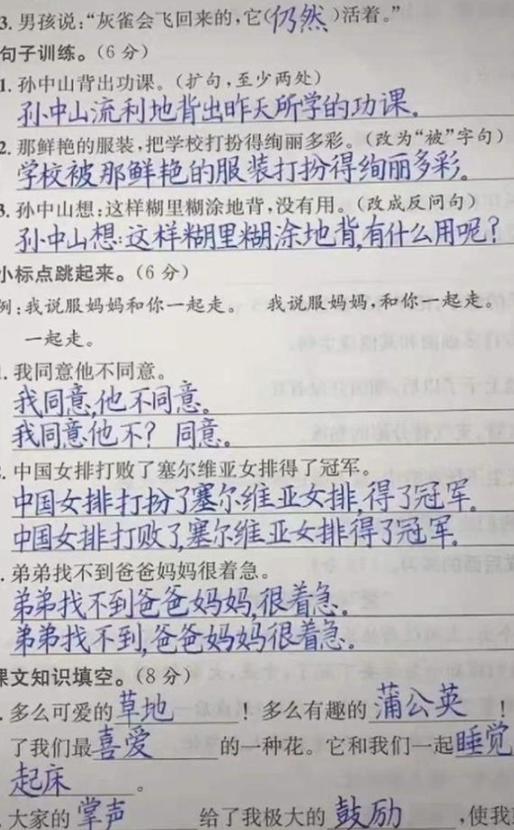 3. 男孩说:“灰雀会飞回来的,它(仍然)活着。”
句子训练。(6分)
1. 孙中山背出功课。(扩句,至少两处)
孙中山流利地背出昨天所学的功课。
2. 那鲜艳的服装,把学校打扮得绚丽多彩。(改为“被”字句)
学校被那鲜艳的服装打扮得绚丽多彩。
3. 孙中山想:这样糊里糊涂地背,没有用。(改成反问句)
孙中山想:这样糊里糊涂地背,有什么用呢?
小标点跳起来。(6分)
例:我说服妈妈和你一起走。 我说服妈妈,和你一起走。
一起走。
. 我同意他不同意。
我同意,他不同意。
我同意他不? 同意。
. 中国女排打败了塞尔维亚女排得了冠军。
中国女排打扮了塞尔维亚女排,得了冠军。
中国女排打败了,塞尔维亚女排得了冠军。
. 弟弟找不到爸爸妈妈很着急。
弟弟找不到爸爸妈妈,很着急。
弟弟找不到,爸爸妈妈很着急。
课文知识填空。(8分)
. 多么可爱的草地!多么有趣的蒲公英!
了我们最喜爱的一种花。它和我们一起睡觉
起床。
. 大家的掌声给了我极大的鼓励,使我